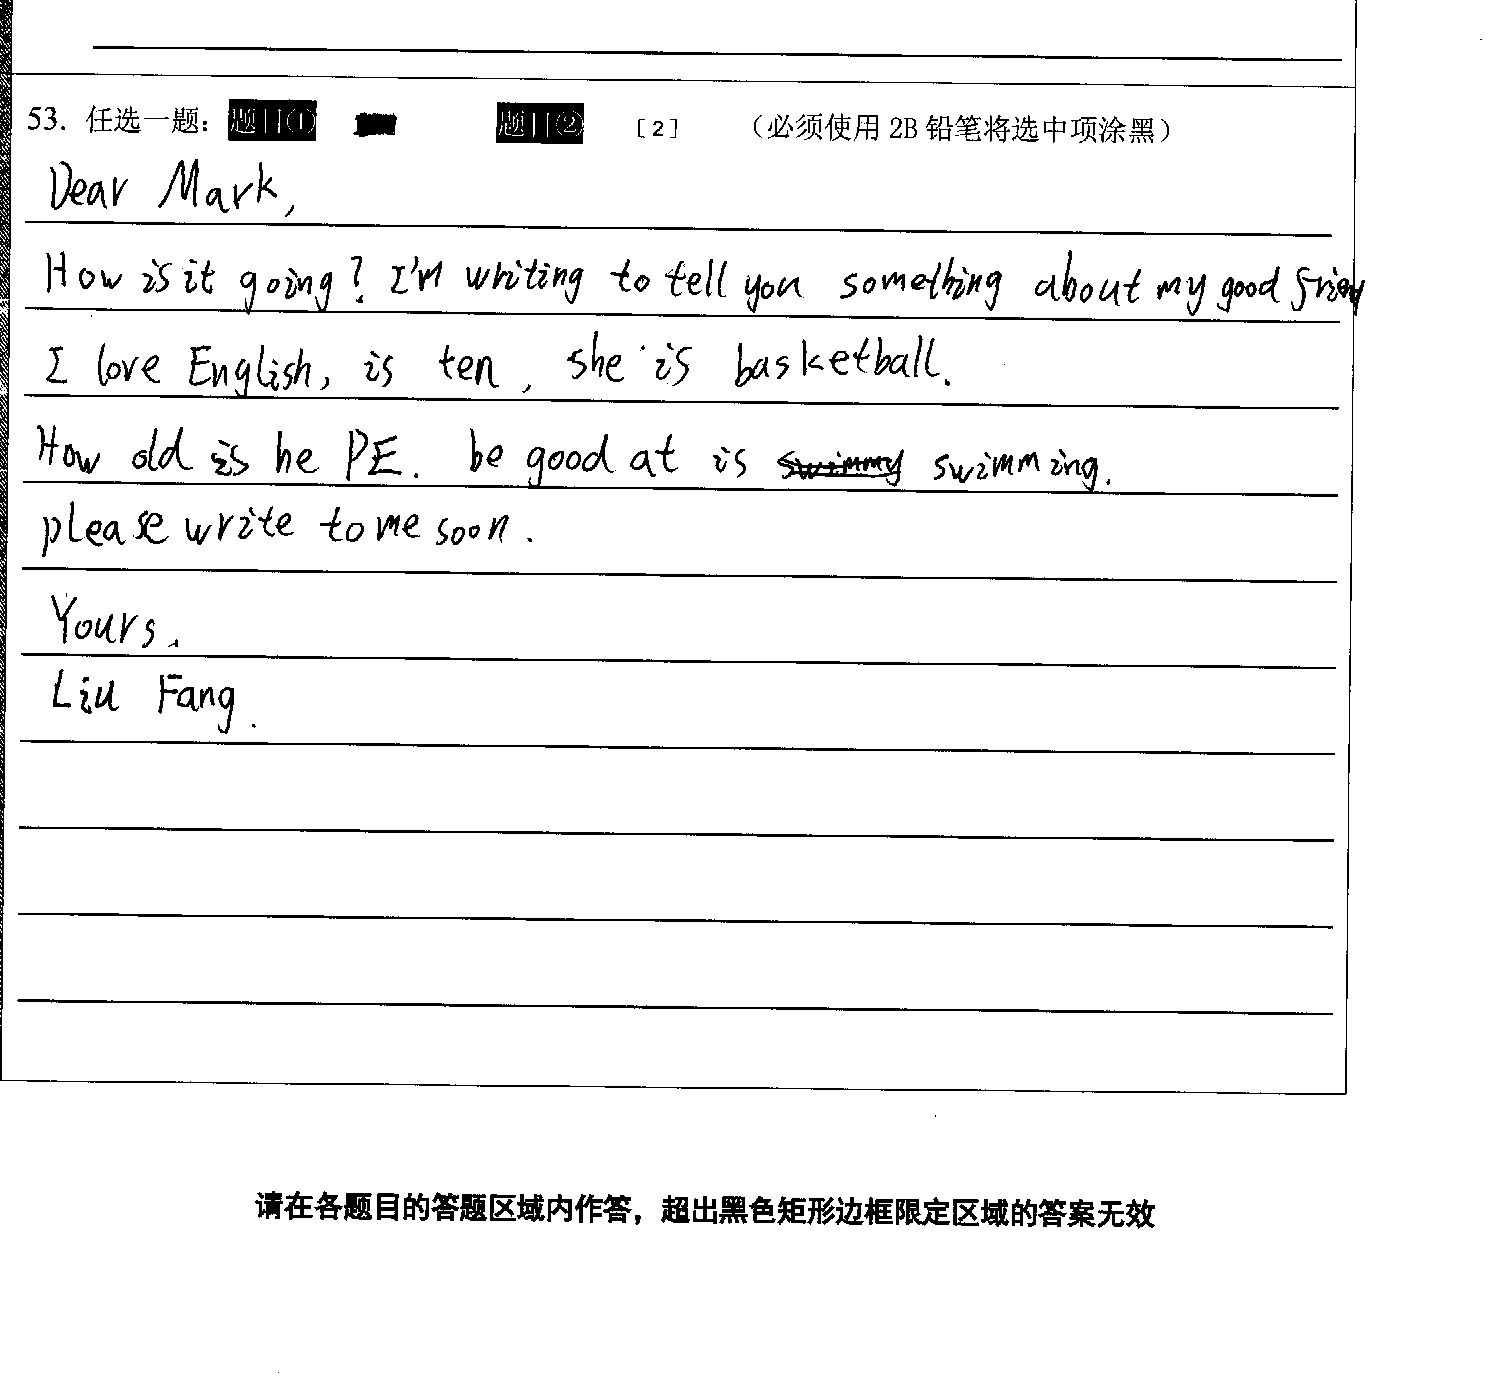 53. 任选一题： 题目① 题目② [2] （必须使用 2B 铅笔将选中项涂黑）
Dear Mark,
How is it going? I'm writing to tell you something about my good friend
I love English, is ten, she is basketball.
How old is he PE. be good at is swimming.
please write to me soon.
Yours.
Liu Fang.
请在各题目的答题区域内作答，超出黑色矩形边框限定区域的答案无效